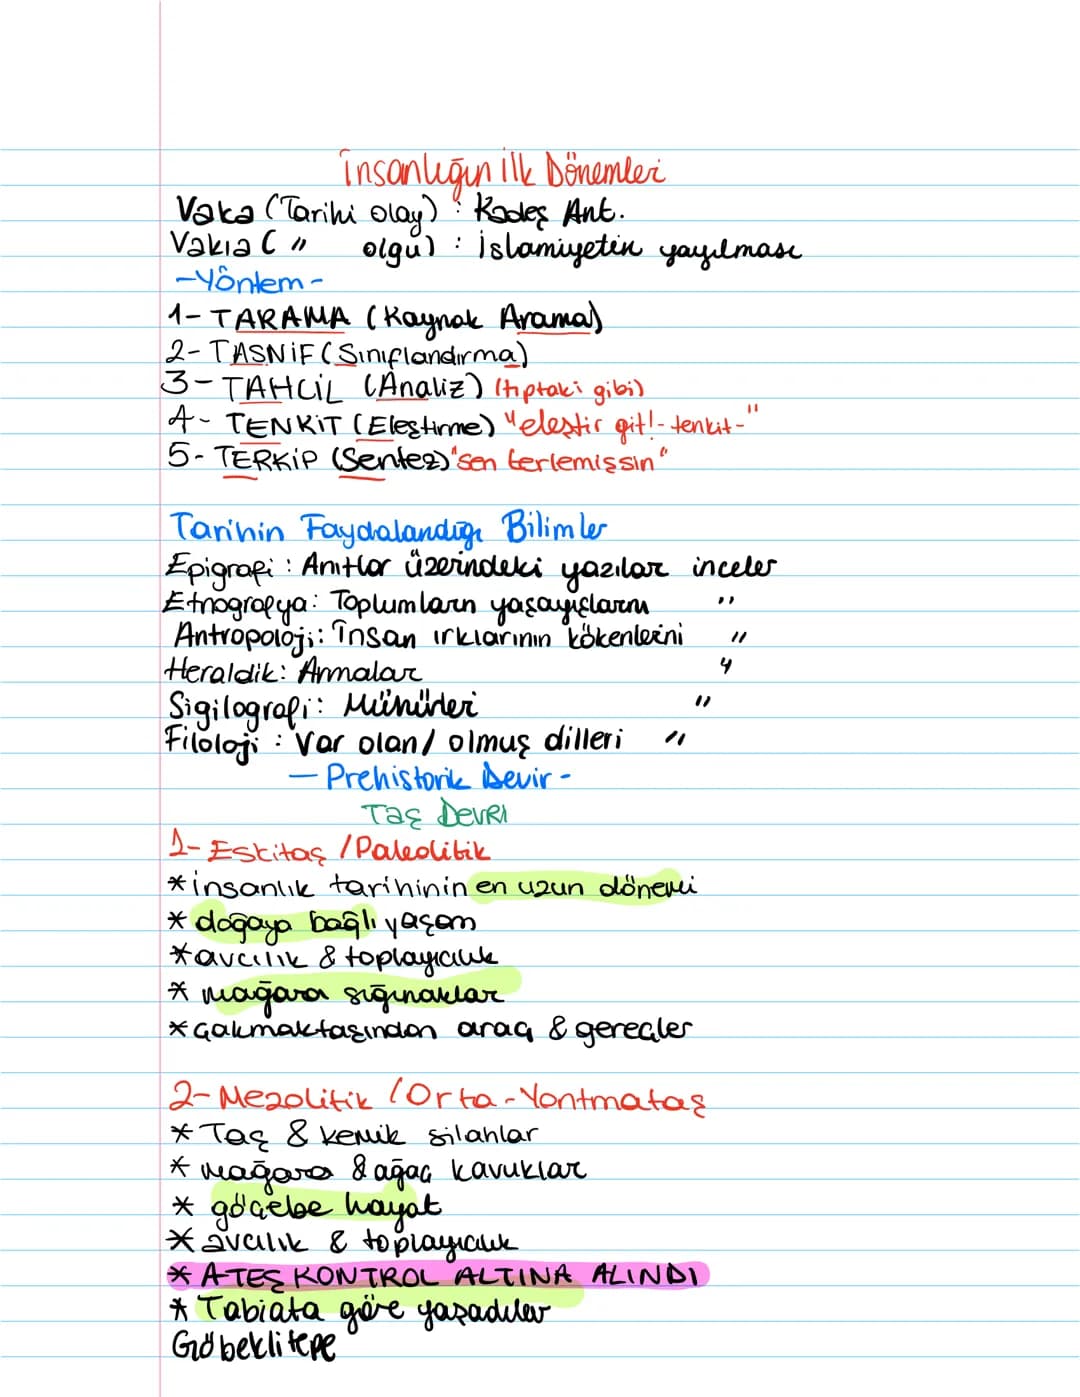 İnsanlığın İlk Dönemleri
Vaka (Tarihi olay) : Kadeş Ant.
Vakıa ( " olgu) : İslamiyetin yayılması
-Yöntem-
1- TARAMA (Kaynak Arama)
2- TASNİF (Sınıflandırma)
3- TAHLİL (Analiz) (tıptaki gibi)
4- TENKİT (Eleştirme) "eleştir git!- tenkit-"
5- TERKİP (Sentez) "sen terlemişsin"
Tarihin Faydalandığı Bilimler
Epigrafi : Anıtlar üzerindeki yazılar inceler
Etnografya: Toplumların yaşayışlarını "
Antropoloji: İnsan ırklarının kökenlerini "
Heraldik: Armalar "
Sigilografi: Mühürleri "
Filoloji : Var olan/ olmuş dilleri "
- Prehistorik Devir -
Taş Devri
1- Eskitaş / Paleolitik
* insanlık tarihinin en uzun dönemi
* doğaya bağlı yaşam
* avcılık & toplayıcılık
* mağara sığınaklar
* Çakmaktaşından araç & gereçler
2- Mezolitik / Orta - Yontmataş
* Taş & kemik silahlar
* mağara & ağaç kavuklar
* göçebe hayat
* avcılık & toplayıcılık
* ATEŞ KONTROL ALTINA ALINDI
* Tabiata göre yaşadılar
Göbeklitepe